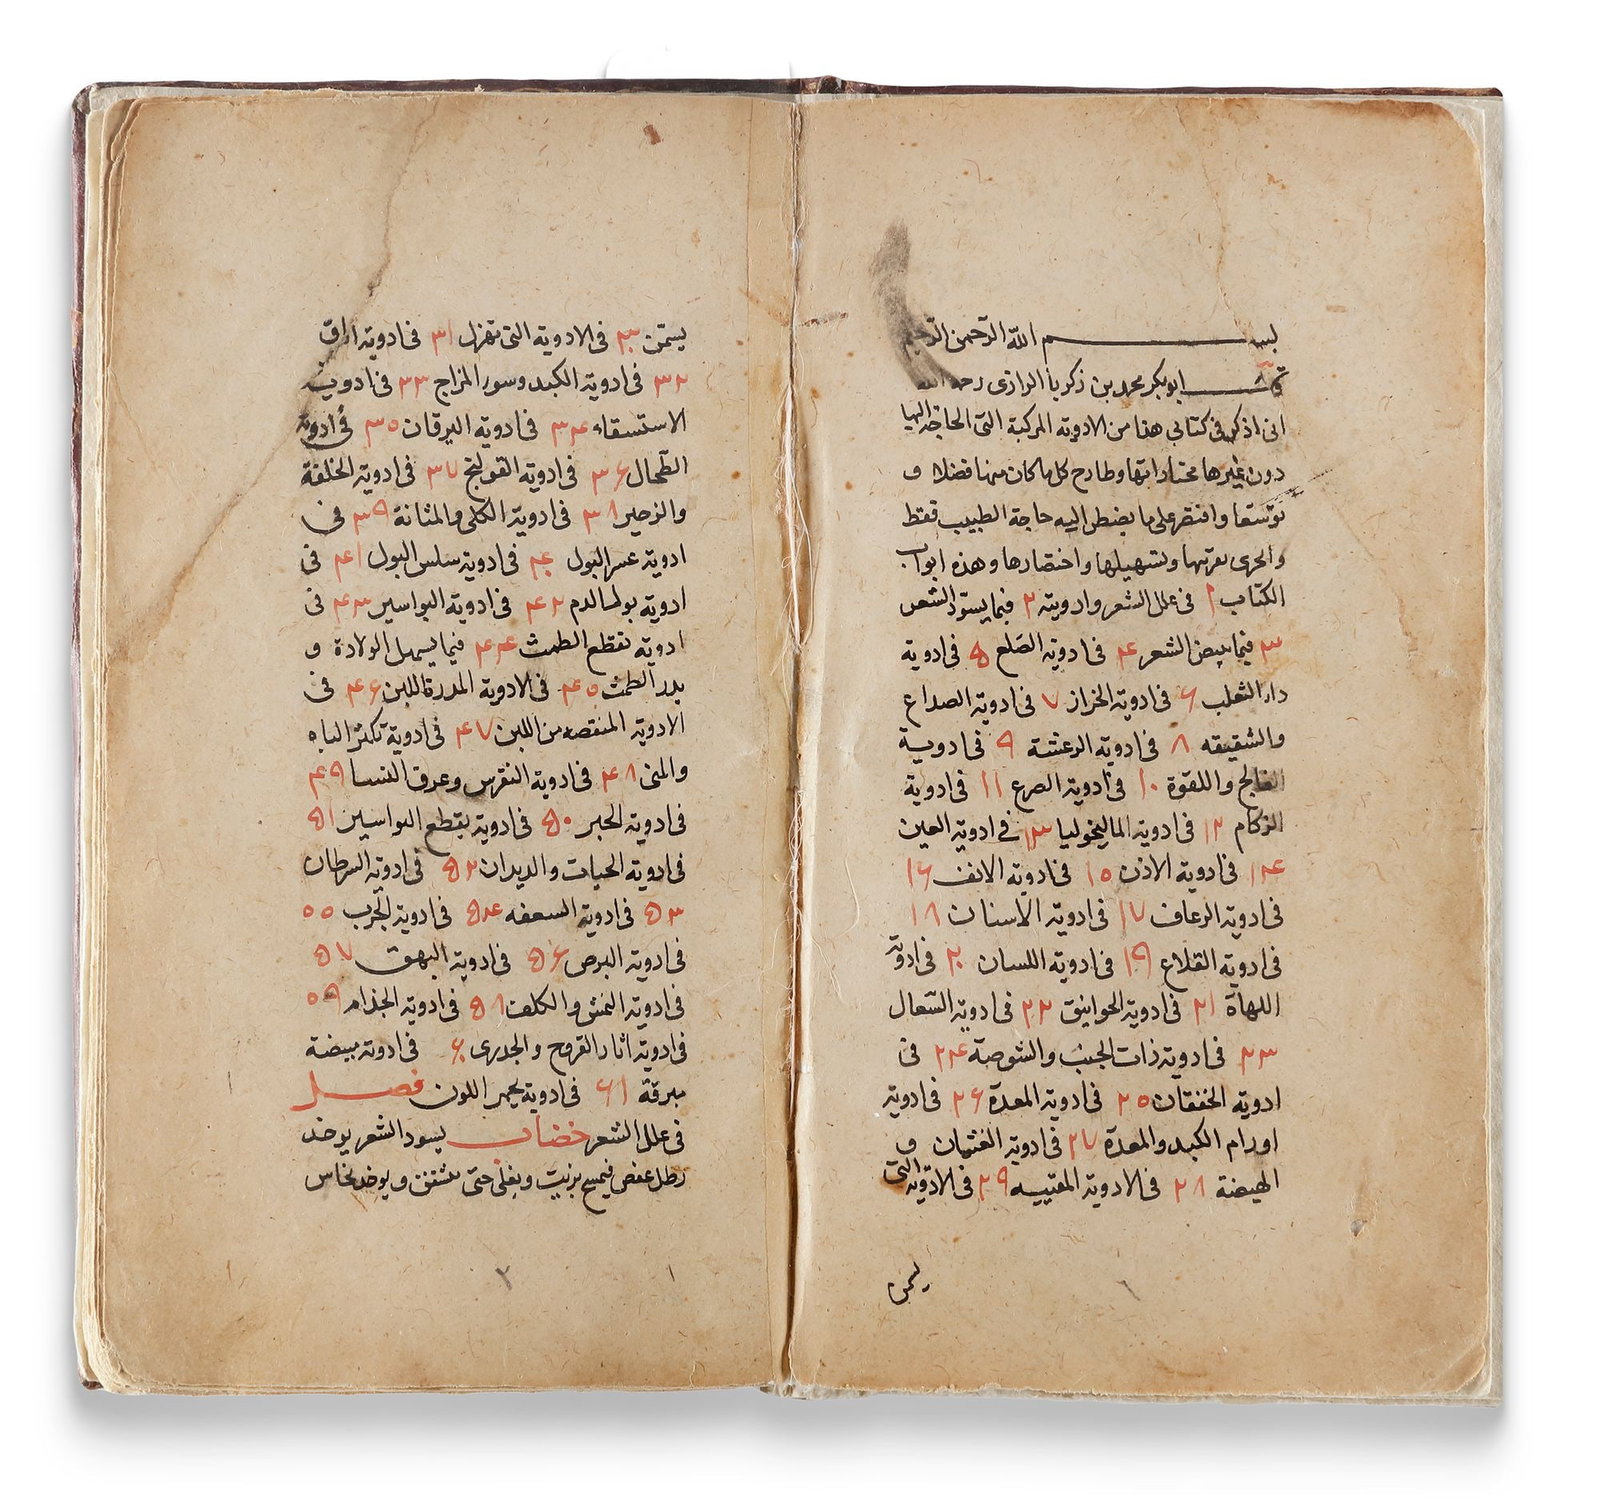 بسم الله الرحمن الرحيم
قال ابوبكر محمد بن زكريا الرازى رحمه الله
انى اذكر فى كتابى هذا من الادوية المركبة التى الحاجة اليها
دون غيرها مختاراتها وطارح كل ما كان منها فضلا و
توسعا واقتصر على ما يضطر اليه حاجة الطبيب فقط
واتحرى بقربتها وتسهيلها واختصارها وهذه ابواب
الكتاب ١ فى علل الشعر وادويته ٢ فيما يسود الشعر
٣ فيما يبيض الشعر ۴ فى ادوية الصلع ۵ فى ادوية
داء الثعلب ۶ فى ادوية الحزاز ٧ فى ادوية الصداع
والشقيقه ٨ فى ادويه الرعشة ٩ فى ادوية
الفالج واللقوة ١٠ فى ادوية الصرع ١١ فى ادوية
الزكام ١٢ فى ادوية الماليخوليا ١٣ فى ادوية العين
١۴ فى ادوية الاذن ١٥ فى ادوية الانف ١۶
فى ادوية الرعاف ١٧ فى ادوية الاسنان ١٨
فى ادويه القلاع ١٩ فى ادوية اللسان ٢٠ فى ادوية
اللهاة ٢١ فى ادوية الخوانيق ٢٢ فى ادوية السعال
٢٣ فى ادوية ذات الجنب والشوصة ٢۴ فى
ادوية الخفقان ٢٥ فى ادوية المعدة ٢۶ فى ادوية
اورام الكبد والمعدة ٢٧ فى ادوية الغثيان و
الهيضة ٢٨ فى الادوية المقييه ٢٩ فى الادوية التى
يسمن
يسمن ٣٠ فى الادوية التى تهزل ٣١ فى ادوية
٣٢ فى ادوية الكبد وسوء المزاج ٣٣ فى ادوية
الاستسقاء ٣۴ فى ادوية اليرقان ٣٥ فى ادوية
الطحال ٣۶ فى ادوية القولنج ٣٧ فى ادوية الخلفة
والزحير ٣٨ فى ادوية الكلى والمثانة ٣٩ فى
ادوية عسر البول ۴٠ فى ادوية سلس البول ۴١ فى
ادوية بول الدم ۴٢ فى ادوية البواسير ۴٣ فى
ادوية تقطع الطمث ۴۴ فيما يسهل الولادة و
يدر الطمث ۴٥ فى الادوية المدرة اللبن ۴۶ فى
الادوية المنقصه من اللبن ۴٧ فى ادوية تكثر الباه
والمنى ۴٨ فى ادوية النقرس وعرق النسا ۴٩
فى ادوية الجبر ۵٠ فى ادوية يقطع البواسير ۵١
فى ادوية الحيات والديدان ۵٢ فى ادوية السرطان
۵٣ فى ادوية السعفه ۵۴ فى ادوية الجرب ٥٥
فى ادوية البرص ۵۶ فى ادوية البهق ۵٧
فى ادوية النمش والكلف ۵٨ فى ادوية الجذام ٥٩
فى ادوية اثار القروح والجدرى ۶٠ فى ادوية مبيضة
مبرقة ۶١ فى ادوية يحمر اللون فصل
فى علل الشعر خضاب يسود الشعر يوخذ
رطل عفص فيمسح بزيت ويغلى حتى يتشقق ويوخذ نحاس
٢